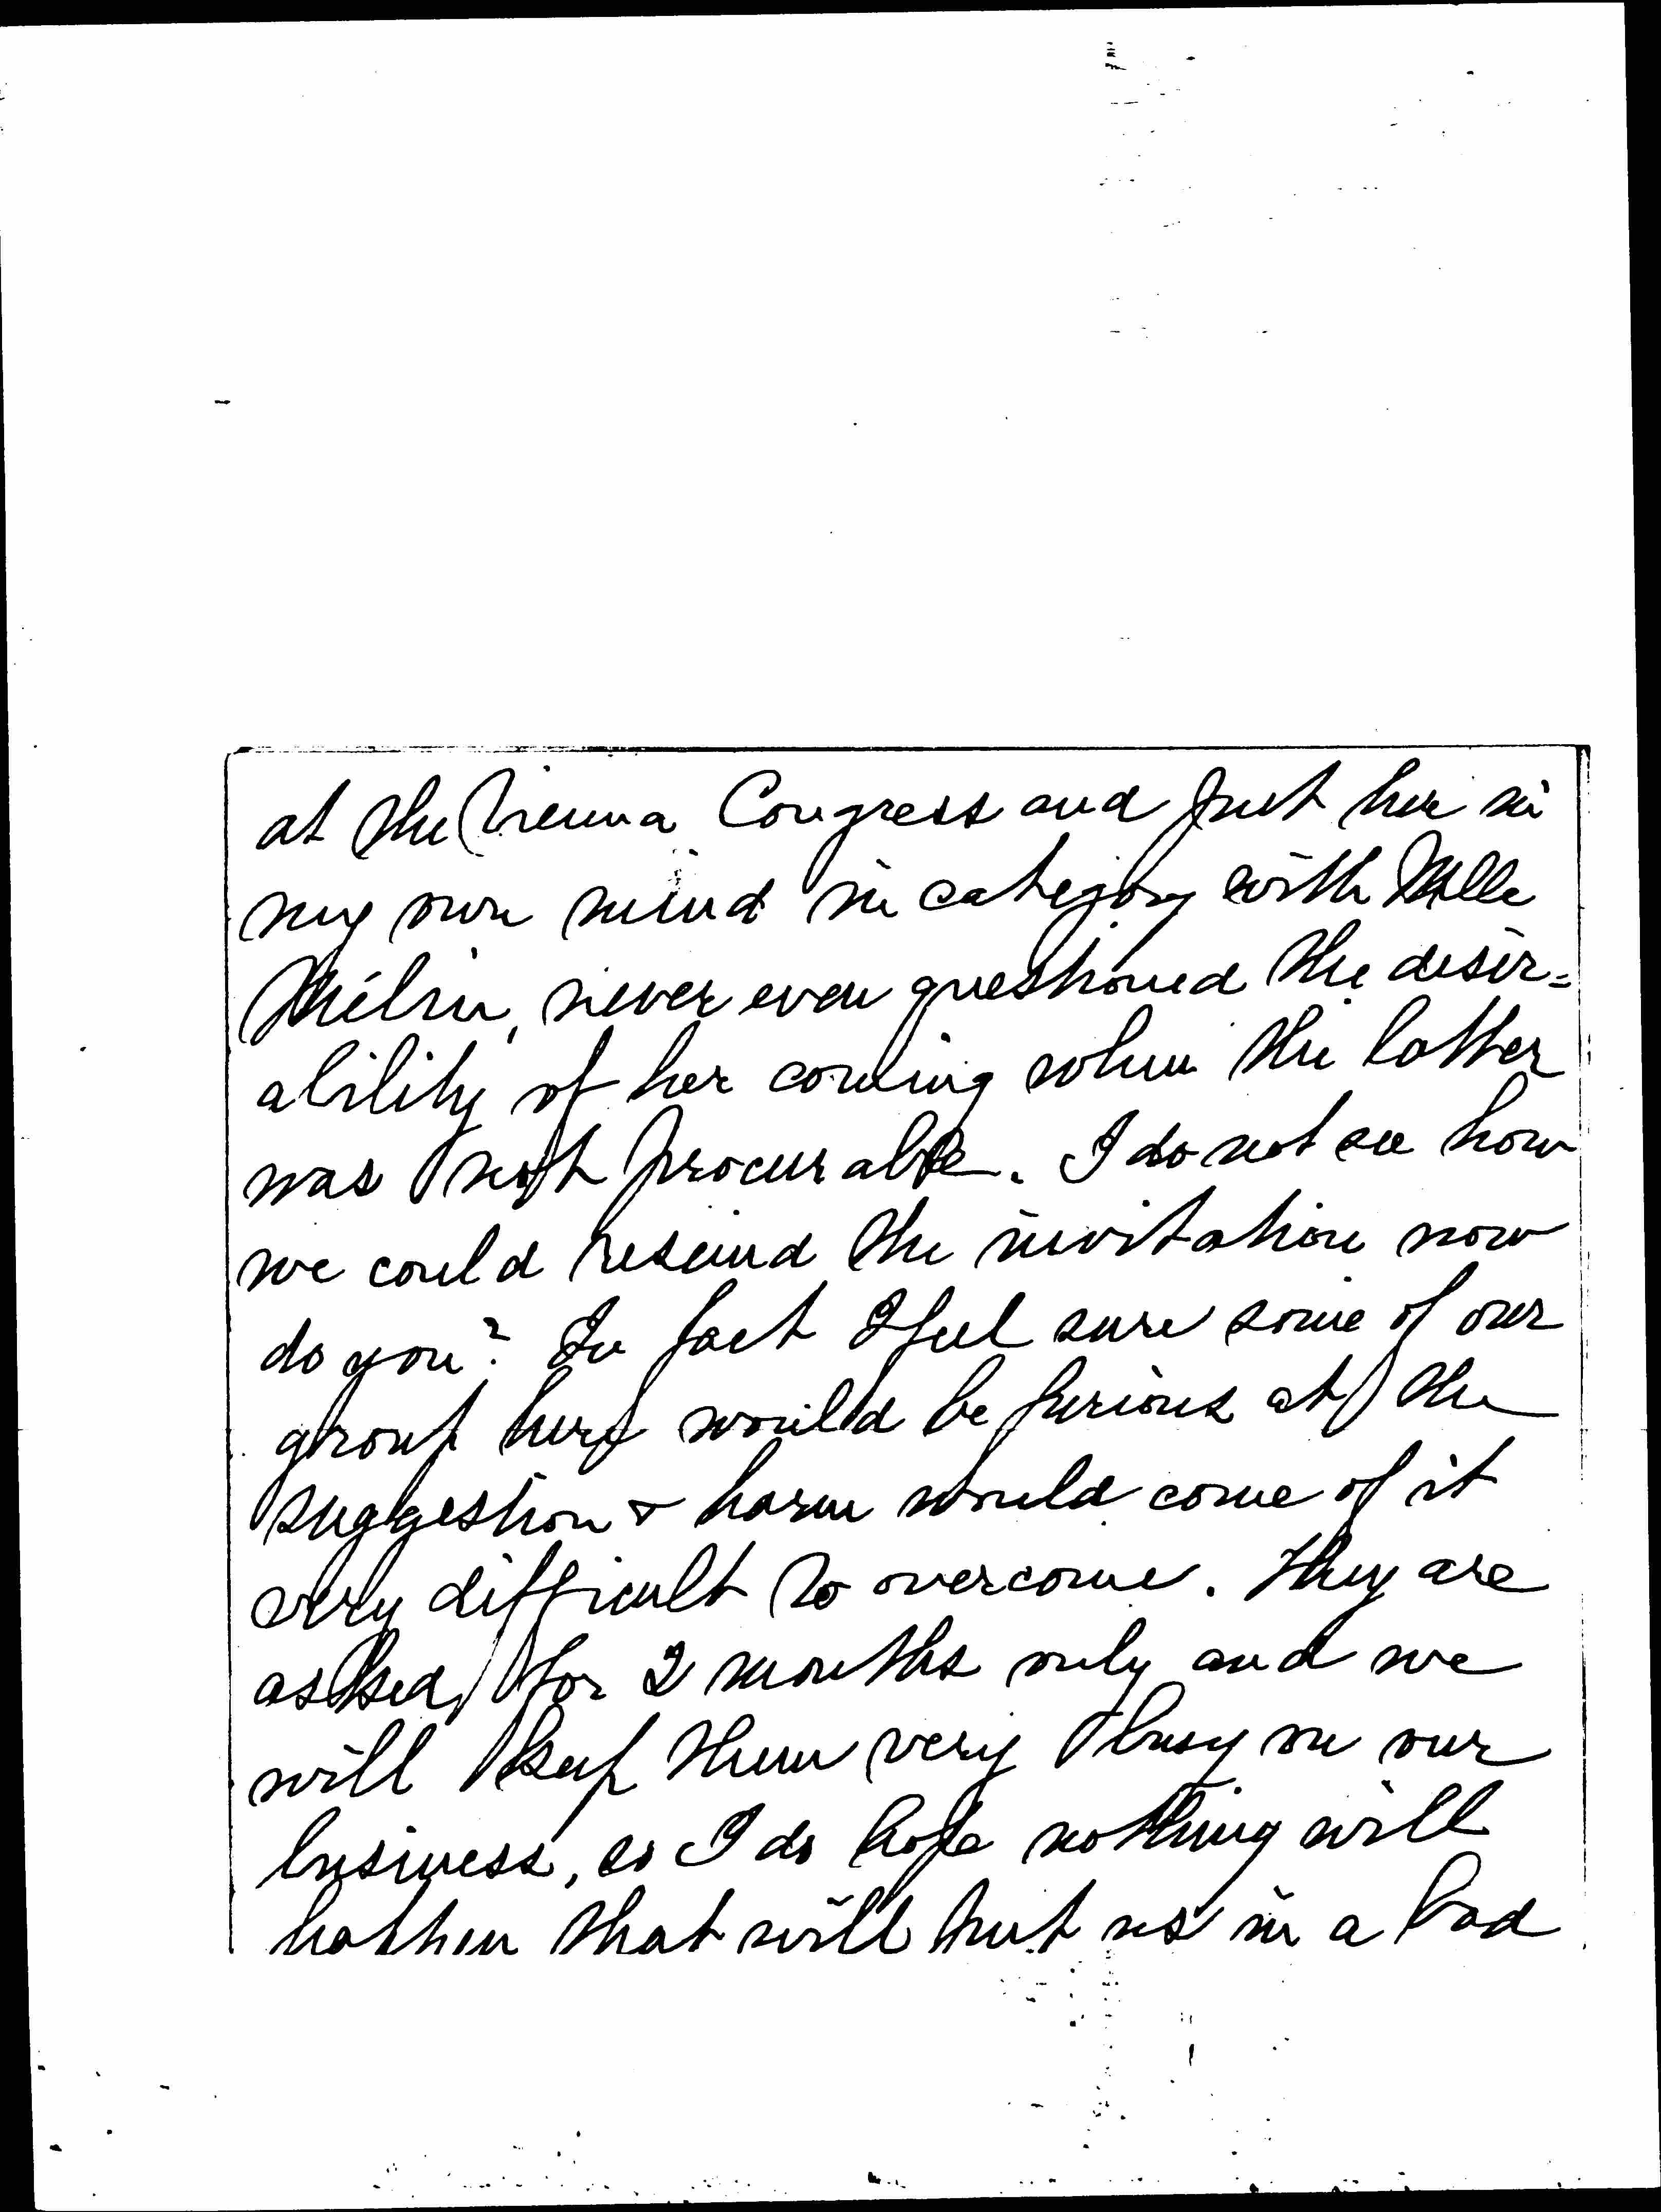 at the Vienna Congress and put her in
my own mind in category with Mlle
Mélin, never even questioned the desir=
ability of her coming when the latter
was not procurable. I do not see how
we could rescind the invitation now
do you? In fact I feel sure some of our
group here would be furious at the
suggestion & harm would come of it
very difficult to overcome. They are
asked for 2 months only and we
will keep them very busy on our
business, so I do hope nothing will
happen that will put us in a bad